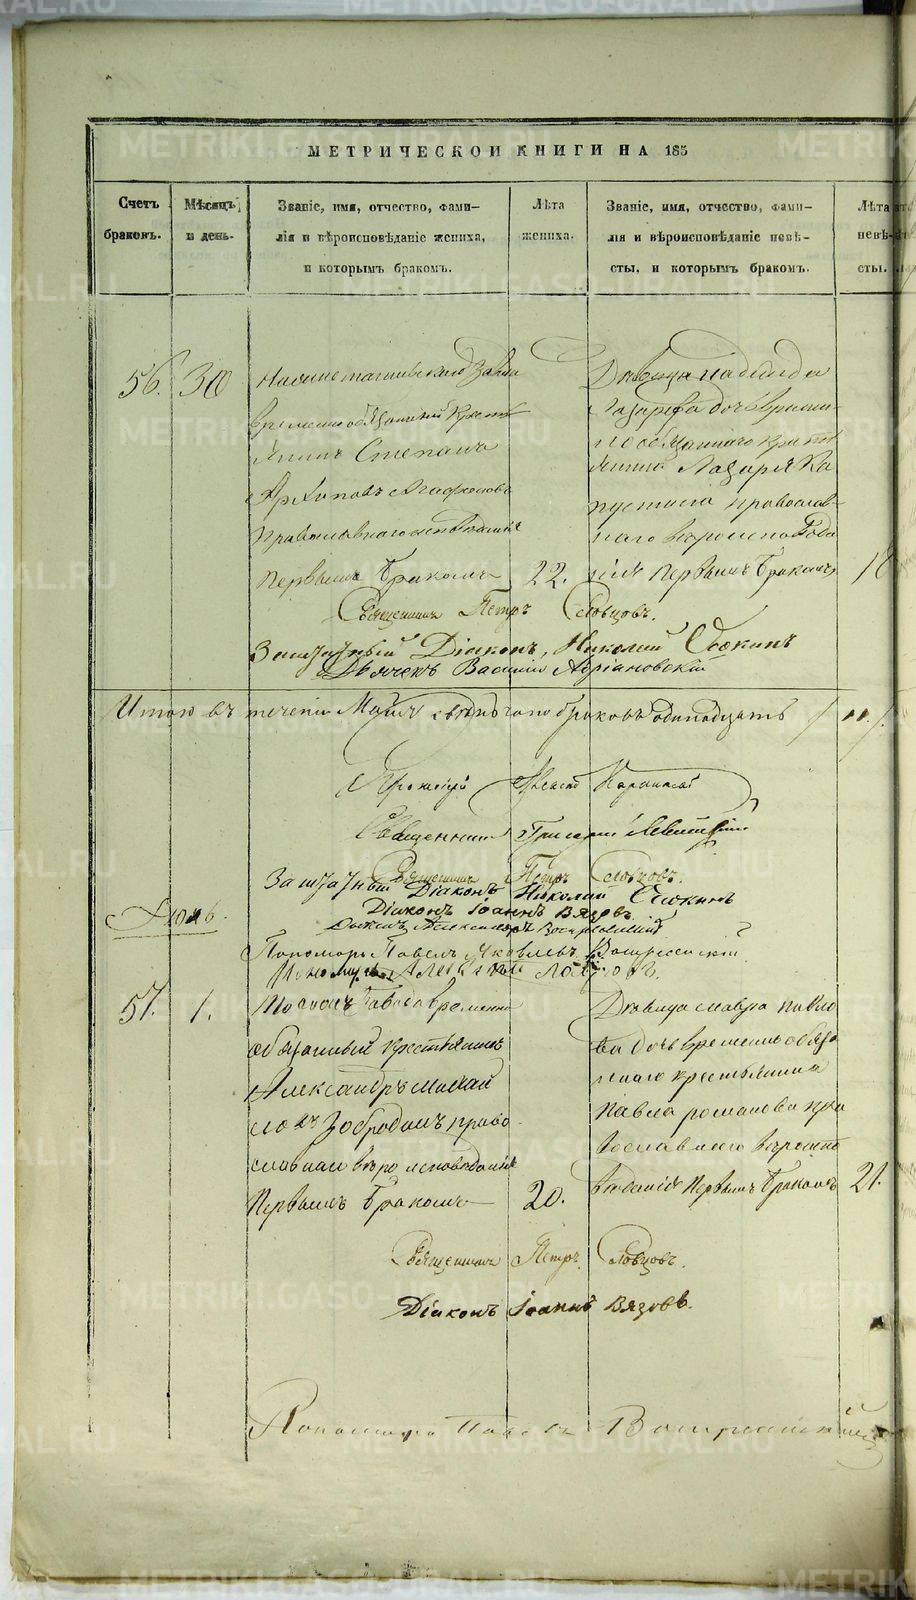 МЕТРИЧЕСКОЙ КНИГИ НА 185
Счетъ браковъ.
Мѣсяцъ и день.
Званіе, имя, отчество, фами-
лія и вѣроисповѣданіе жениха,
и которымъ бракомъ.
Лѣта жениха.
Званіе, имя, отчество, фами-
лія и вѣроисповѣданіе невѣ-
сты, и которымъ бракомъ.
Лѣта
невѣ-
сты.
56. 30
временно обязанный кресть
янинъ Степанъ
Архиповъ Агафоновъ
православнаго исповѣданія
Первымъ бракомъ
22.
Дѣвица Надежда
Лазарева дочь времян-
но обязаннаго кресть
янина Лазаря Ка
пустина православ-
наго вѣроисповѣда
нія первымъ бракомъ
Священникъ Петръ Словцовъ.
Заштатный Діаконъ, Николай
Дьячекъ Василий Адріановский
Итого въ теченіи Маія браковъ одинадцать /11/.
Священникъ Григорій Левитскій
Священникъ Петръ Словцовъ.
Заштатный Діаконъ Николай
Діаконъ Іоаннъ Вязовъ
Іюнь.
Пономарь Павелъ Яковлевъ Воскресенский
57. 1.
завода временно
обязанный крестьянинъ
Александръ Михай
ловъ право
славнаго вѣроисповѣданія
Первымъ бракомъ
20.
Дѣвица Мавра Павло
ва дочь временно обяза
ннаго крестьянина
Павла Романова пра
вославнаго вѣроиспо
вѣданія Первымъ бракомъ
21.
Священникъ Петръ Словцовъ.
Діаконъ Іоаннъ Вязовъ.
Пономарь Павелъ Воскресенскій